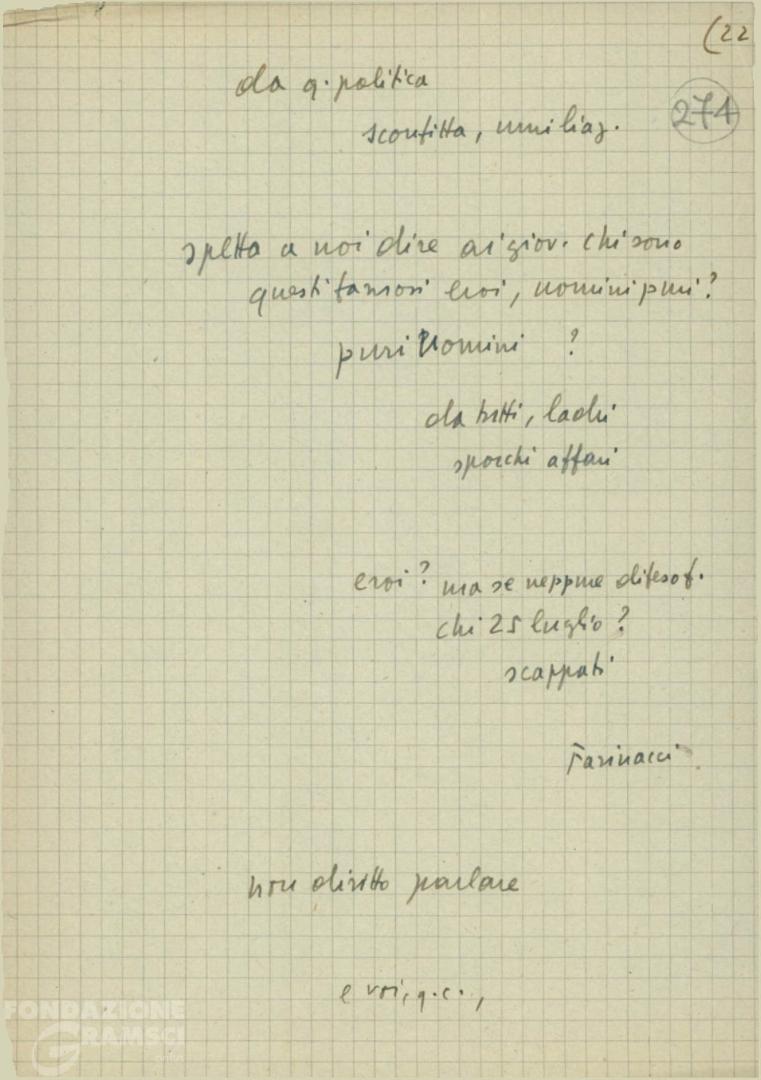 (22
274
da q. politica
sconfitta, umiliaz.
spetta a noi dire ai giov. chi sono
questi famosi eroi, uomini puri?
puri uomini ?
da tutti, ladri
sporchi affari
eroi? ma se neppure difeso f.
chi 25 luglio?
scappati
Farinacci
non diritto parlare
e voi, q.c.,
FONDAZIONE
GRAMSCI